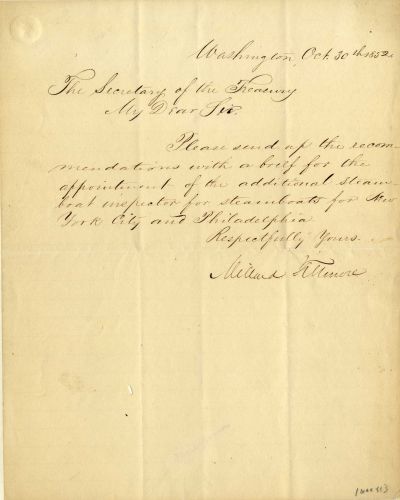 Washington, Oct. 30th 1852.
The Secretary of the Treasury
My Dear Sir.
Please send up the recom-
mendations with a brief for the
appointment of the additional steam-
boat inspector for steamboats for New
York City and Philadelphia
Respectfully Yours.
Millard Fillmore